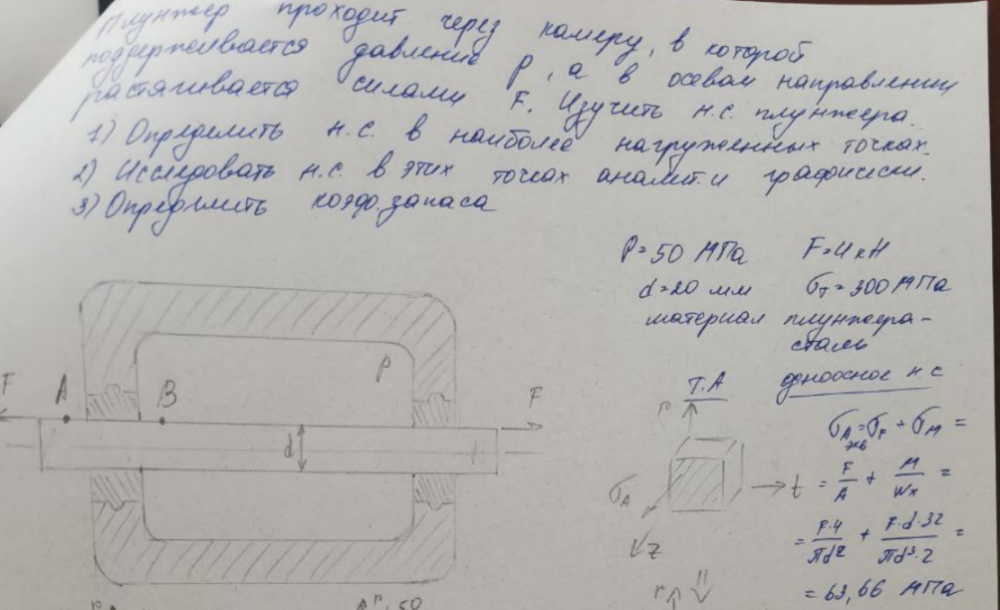 Плунжер проходит через камеру, в которой
поддерживается давление P, а в осевом направлении
растягивается силами F. Изучить н.с. плунжера.
1) Определить н.с. в наиболее нагруженных точках.
2) Исследовать н.с. в этих точках аналит. и графически.
3) Определить коэф. запаса
P=50 МПа F=4кН
d=20 мм σт=300 МПа
материал плунжера-
сталь
одноосное н.с
т.А
F A B P F
d
r
σA t
z
σA экв = σF + σM =
= F/A + M/Wx =
= F·4/πd² + F·d·32/πd³·2 =
= 63,66 МПа